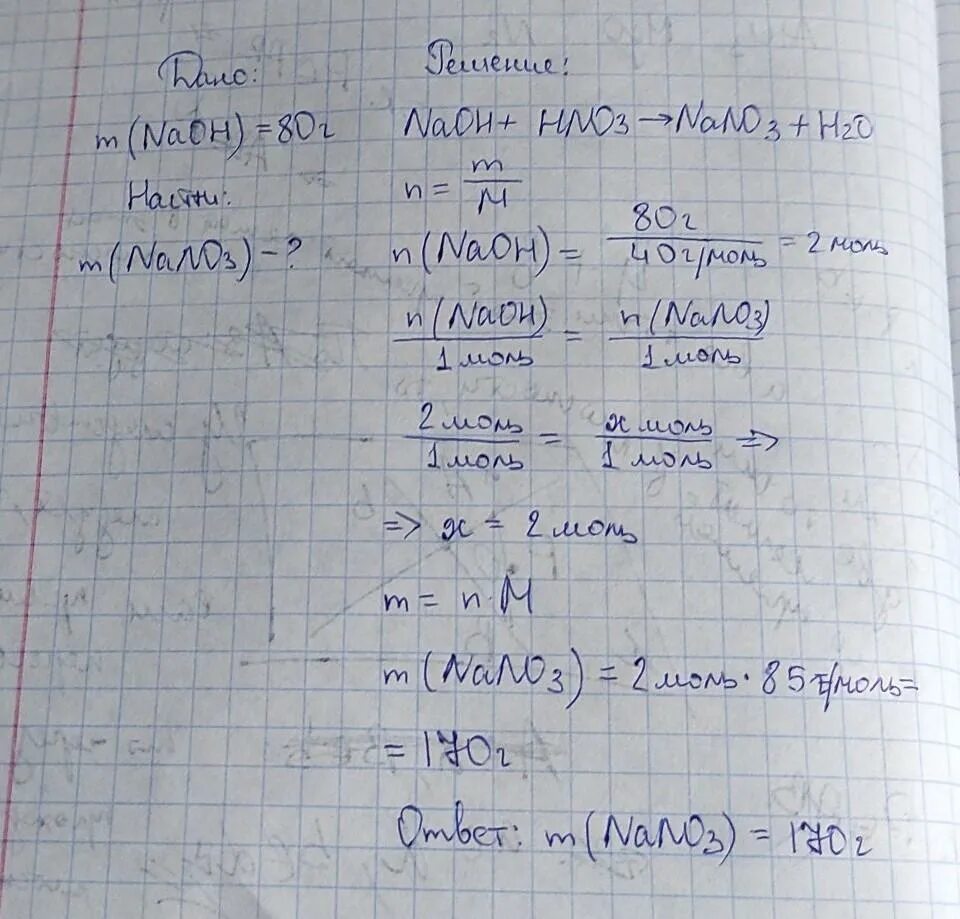 Дано:
m(NaOH) = 80г
Найти:
m(NaNO3) - ?
Решение:
NaOH + HNO3 → NaNO3 + H2O
n = m/M
n(NaOH) = 80г/40г/моль = 2 моль
n(NaOH)/1 моль = n(NaNO3)/1 моль
2 моль/1 моль = x моль/1 моль =>
=> x = 2 моль
m = n · M
m(NaNO3) = 2 моль · 85 г/моль =
= 170г
Ответ: m(NaNO3) = 170г